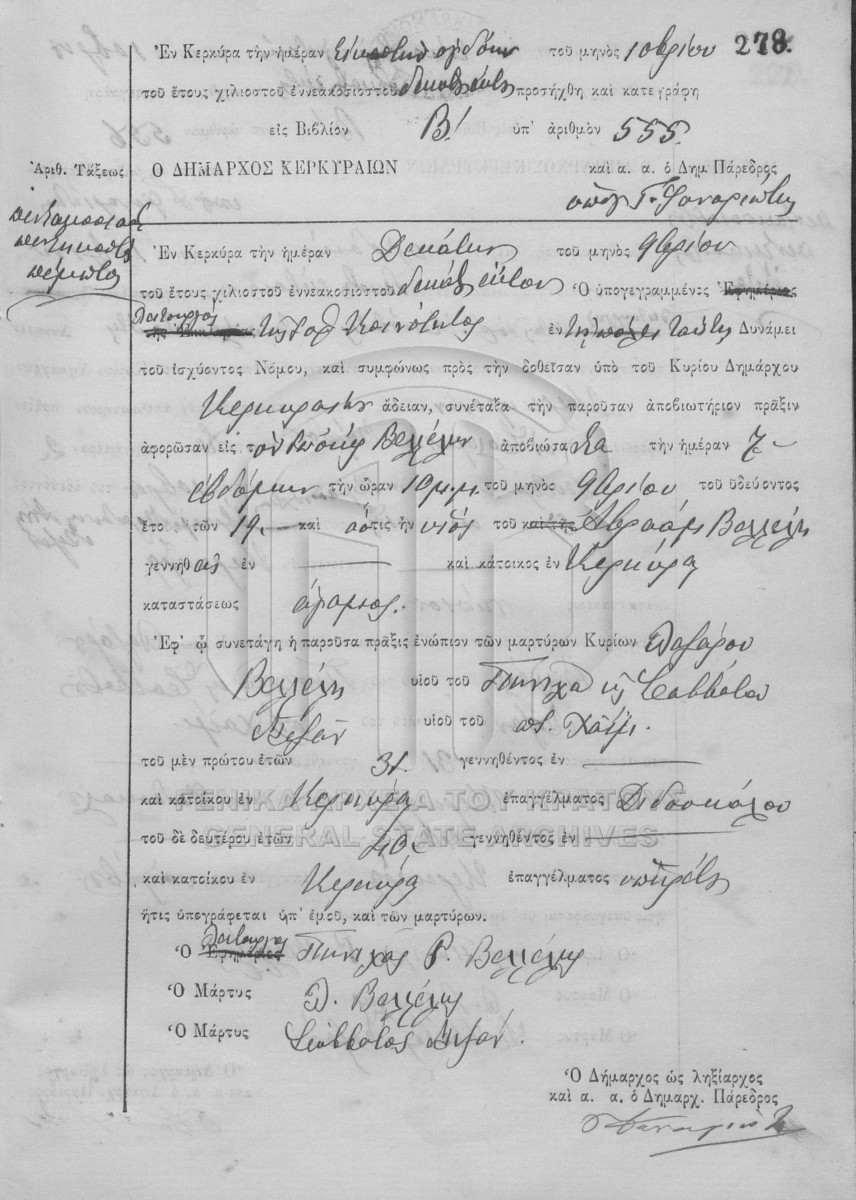 278.
Ἐν Κερκύρᾳ τὴν ἡμέραν Εἰκοστὴν ὀγδόην τοῦ μηνὸς 10βρίου
τοῦ ἔτους χιλιοστοῦ ἐννεακοσιοστοῦ δεκάτου προσήχθη καὶ κατεγράφη
εἰς Βιβλίον Β! ὑπ' ἀριθμὸν 555.
Ἀριθ. Τάξεως Ο ΔΗΜΑΡΧΟΣ ΚΕΡΚΥΡΑΙΩΝ καὶ α. α. ὁ Δημ Πάρεδρος
πεντακοσιοστὸς
πεντηκοστὸς
πέμπτος
Ἐν Κερκύρᾳ τὴν ἡμέραν Δεκάτην τοῦ μηνὸς 9βρίου
τοῦ ἔτους χιλιοστοῦ ἐννεακοσιοστοῦ Ὁ ὑπογεγραμμένος Ἐφημέριος
Λειτουργὸς
τῆς Κοινότητος ἐν τῇ πόλει ταύτῃ Δυνάμει
τοῦ ἰσχύοντος Νόμου, καὶ συμφώνως πρὸς τὴν δοθεῖσαν ὑπὸ τοῦ Κυρίου Δημάρχου
Κερκυραίων ἄδειαν, συνέταξα τὴν παροῦσαν ἀποβιωτήριον πρᾶξιν
ἀφορῶσαν εἰς τὸν Βελλέλην ἀποβιώσαντα τὴν ἡμέραν 7
ἑβδόμην τὴν ὥραν 10 μ.μ. τοῦ μηνὸς 9βρίου τοῦ ὁδεύοντος
ἔτο τῶν 19. καὶ ὅστις ἦν υἱὸς τοῦ καὶ τῆς Ἀβραὰμ Βελλέλη
γεννηθεὶς ἐν καὶ κάτοικος ἐν Κερκύρᾳ
καταστάσεως ἄγαμος.
Ἐφ' ᾧ συνετάγη ἡ παροῦσα πρᾶξις ἐνώπιον τῶν μαρτύρων Κυρίων Λαζάρου
Βελλέλη υἱοῦ τοῦ Πινιχᾶ κ Σαββάτου
Βιζᾶν υἱοῦ τοῦ Χαΐμ.
τοῦ μὲν πρώτου ἐτῶν 31. γεννηθέντος ἐν
καὶ κατοίκου ἐν Κερκύρᾳ ἐπαγγέλματος Διδασκάλου
ΓΕΝΙΚΑ ΑΡΧΕΙΑ ΤΟΥ ΚΡΑΤΟΥΣ
τοῦ δὲ δευτέρου ἐτῶν 40 γεννηθέντος ἐν
GENERAL STATE ARCHIVES
καὶ κατοίκου ἐν Κερκύρᾳ ἐπαγγέλματος ὑπηρέτη
ἥτις ὑπογράφεται ὑπ' ἐμοῦ, καὶ τῶν μαρτύρων.
Λειτουργὸς
Ὁ Ἐφημέριος Πινιχᾶς Ρ. Βελλέλης
Ὁ Μάρτυς Λ. Βελλέλης
Ὁ Μάρτυς Σαββάτος Βιζάν.
Ὁ Δήμαρχος ὡς ληξίαρχος
καὶ α. α. ὁ Δημαρχ. Πάρεδρος